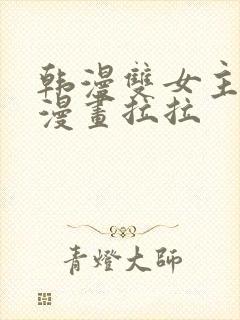 韩漫雙女主
漫畫拉拉
青燈大師